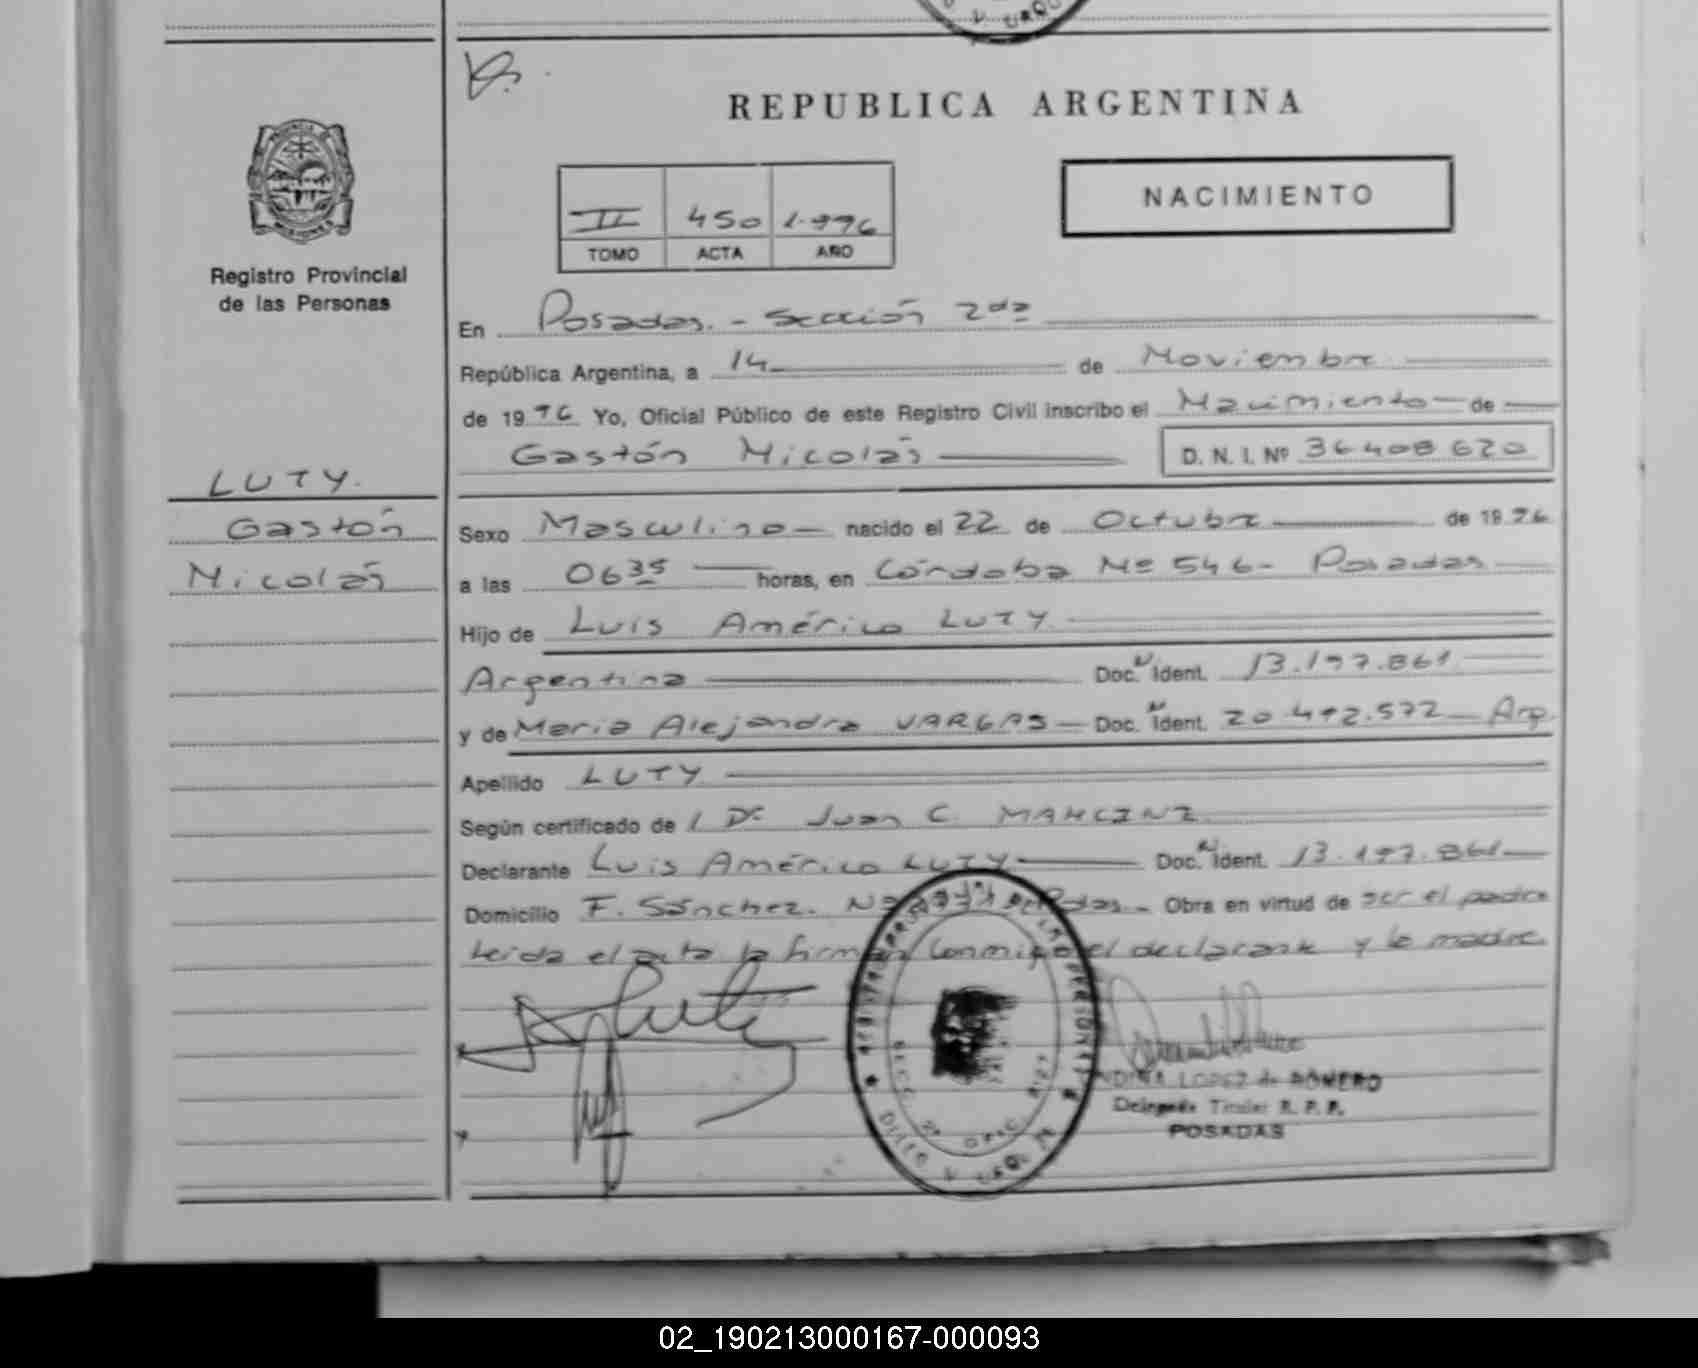 V. URQU
REPUBLICA ARGENTINA
PROVINCIA DE
MISIONES
Registro Provincial
de las Personas
II 450 1.996
TOMO ACTA AÑO
NACIMIENTO
En Posadas. - Sección 2da
República Argentina, a 14 de Noviembre
de 1996 Yo, Oficial Público de este Registro Civil inscribo el Nacimiento de
Gastón Nicolás D. N. I. Nº 36408620
LUTY.
Gastón
Nicolás
Sexo Masculino nacido el 22 de Octubre de 1996
a las 0635 horas, en Córdoba Nº 546- Posadas
Hijo de Luis Américo LUTY
Argentina Doc. Ident. 13.197.861
y de Maria Alejandra VARGAS - Doc. Ident. 20.492.572 - Arg.
Apellido LUTY
Según certificado de l Dr Juan C. MANCINI
Declarante Luis Américo LUTY Doc. Ident. 13.197.861
Domicilio F. Sánchez. Pdas - Obra en virtud de ser el padre
leida el acta la firman conmigo el declarante y la madre.
LOPEZ de ROMERO
Delegada Titular R. P. P.
POSADAS
02_190213000167-000093